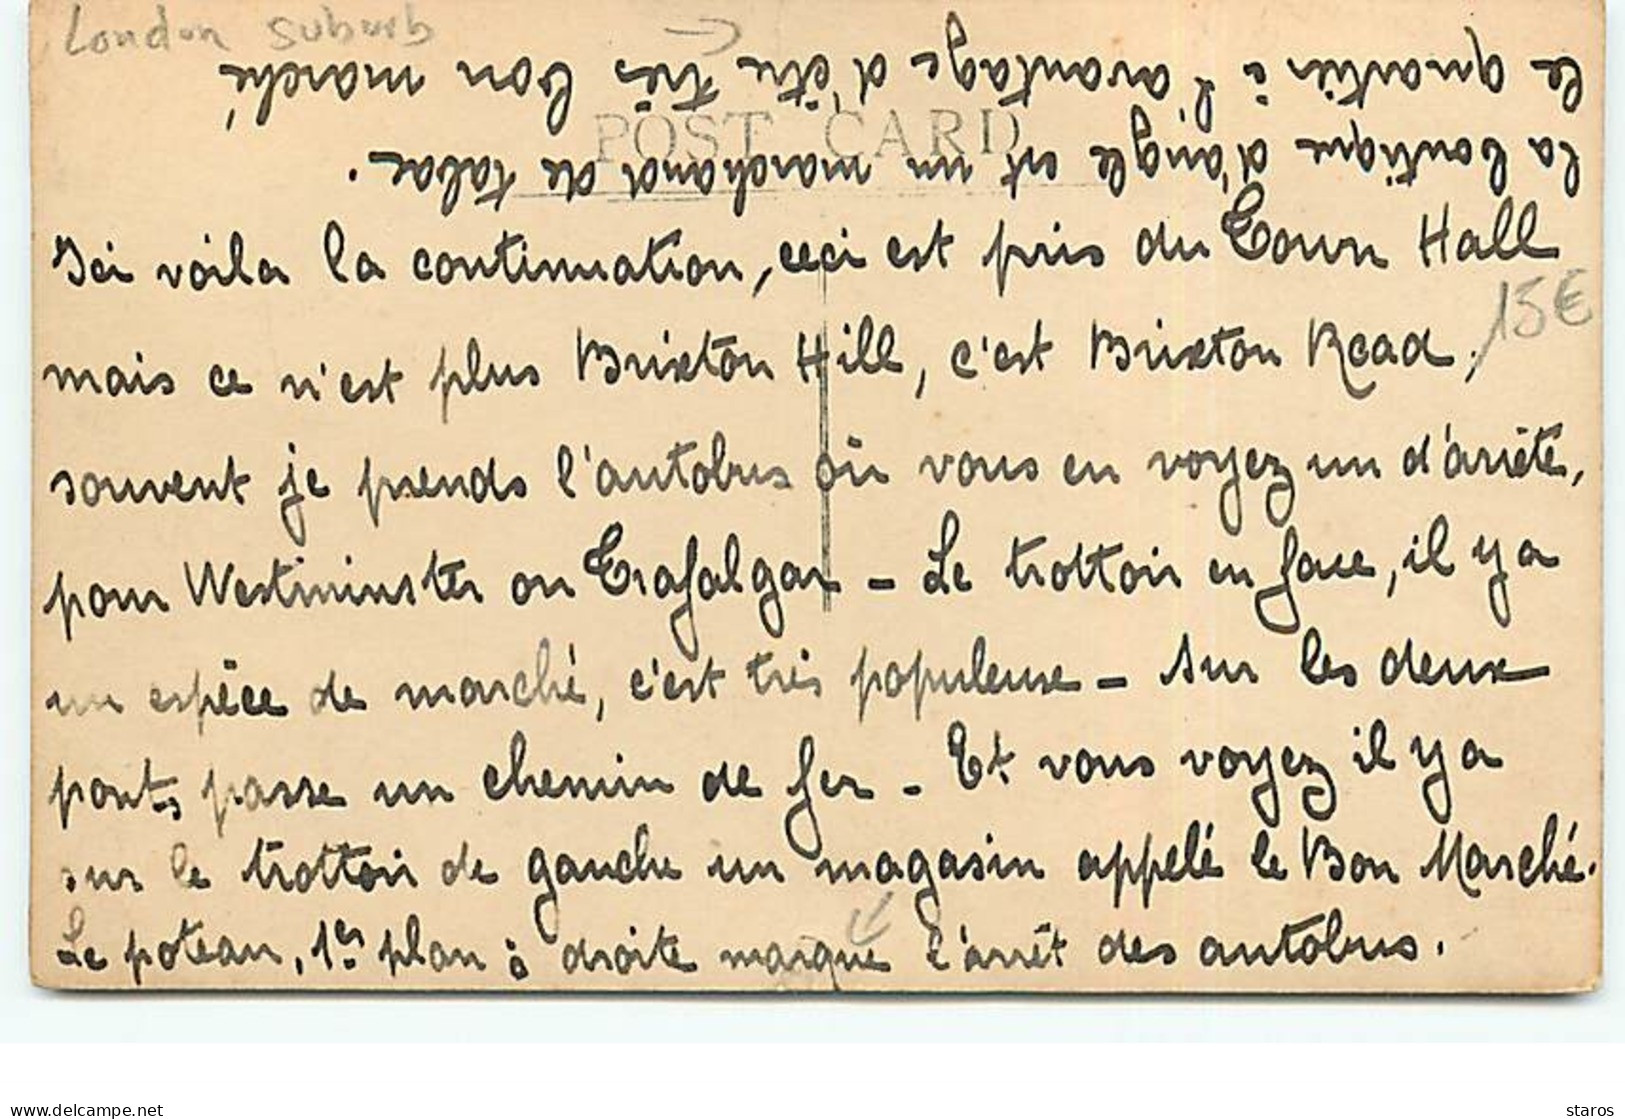 London suburb
15€
POST CARD
Ici voila la continuation, ceci est pris du Town Hall
mais ce n'est plus Brixton Hill, c'est Brixton Road,
souvent je prends l'autobus où vous en voyez un d'arrêté,
pour Westminster ou Trafalgar - Le trottoir en face, il y a
un espèce de marché, c'est très populeux - Sur les deux
ponts passe un chemin de fer - Et vous voyez il y a
sur le trottoir de gauche un magasin appelé le Bon Marché.
Le poteau, 1er plan à droite marque l'arrêt des autobus.
la boutique d'angle est un marchand de tabac.
le quartier à l'avantage d'être très bon marché
delcampe.net
staros